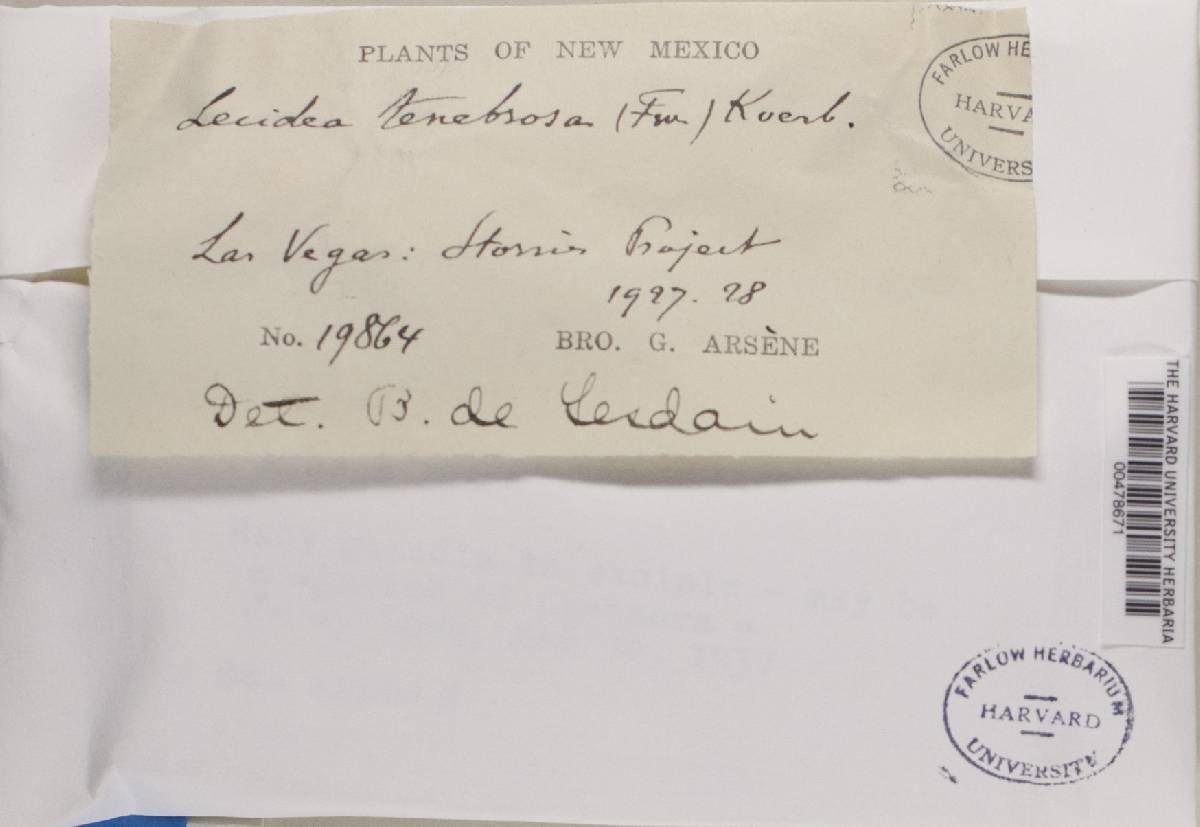 PLANTS OF NEW MEXICO
Lecidea tenebrosa (Fw.) Koerb.
FARLOW HE
HARVA
UNIVERS
Las Vegas: Storrie Project
1927. 28
No. 19864 BRO. G. ARSÈNE
Det. B. de Lesdain
THE HARVARD UNIVERSITY HERBARIA
00478671
FARLOW HERBARIUM
HARVARD
UNIVERSITY